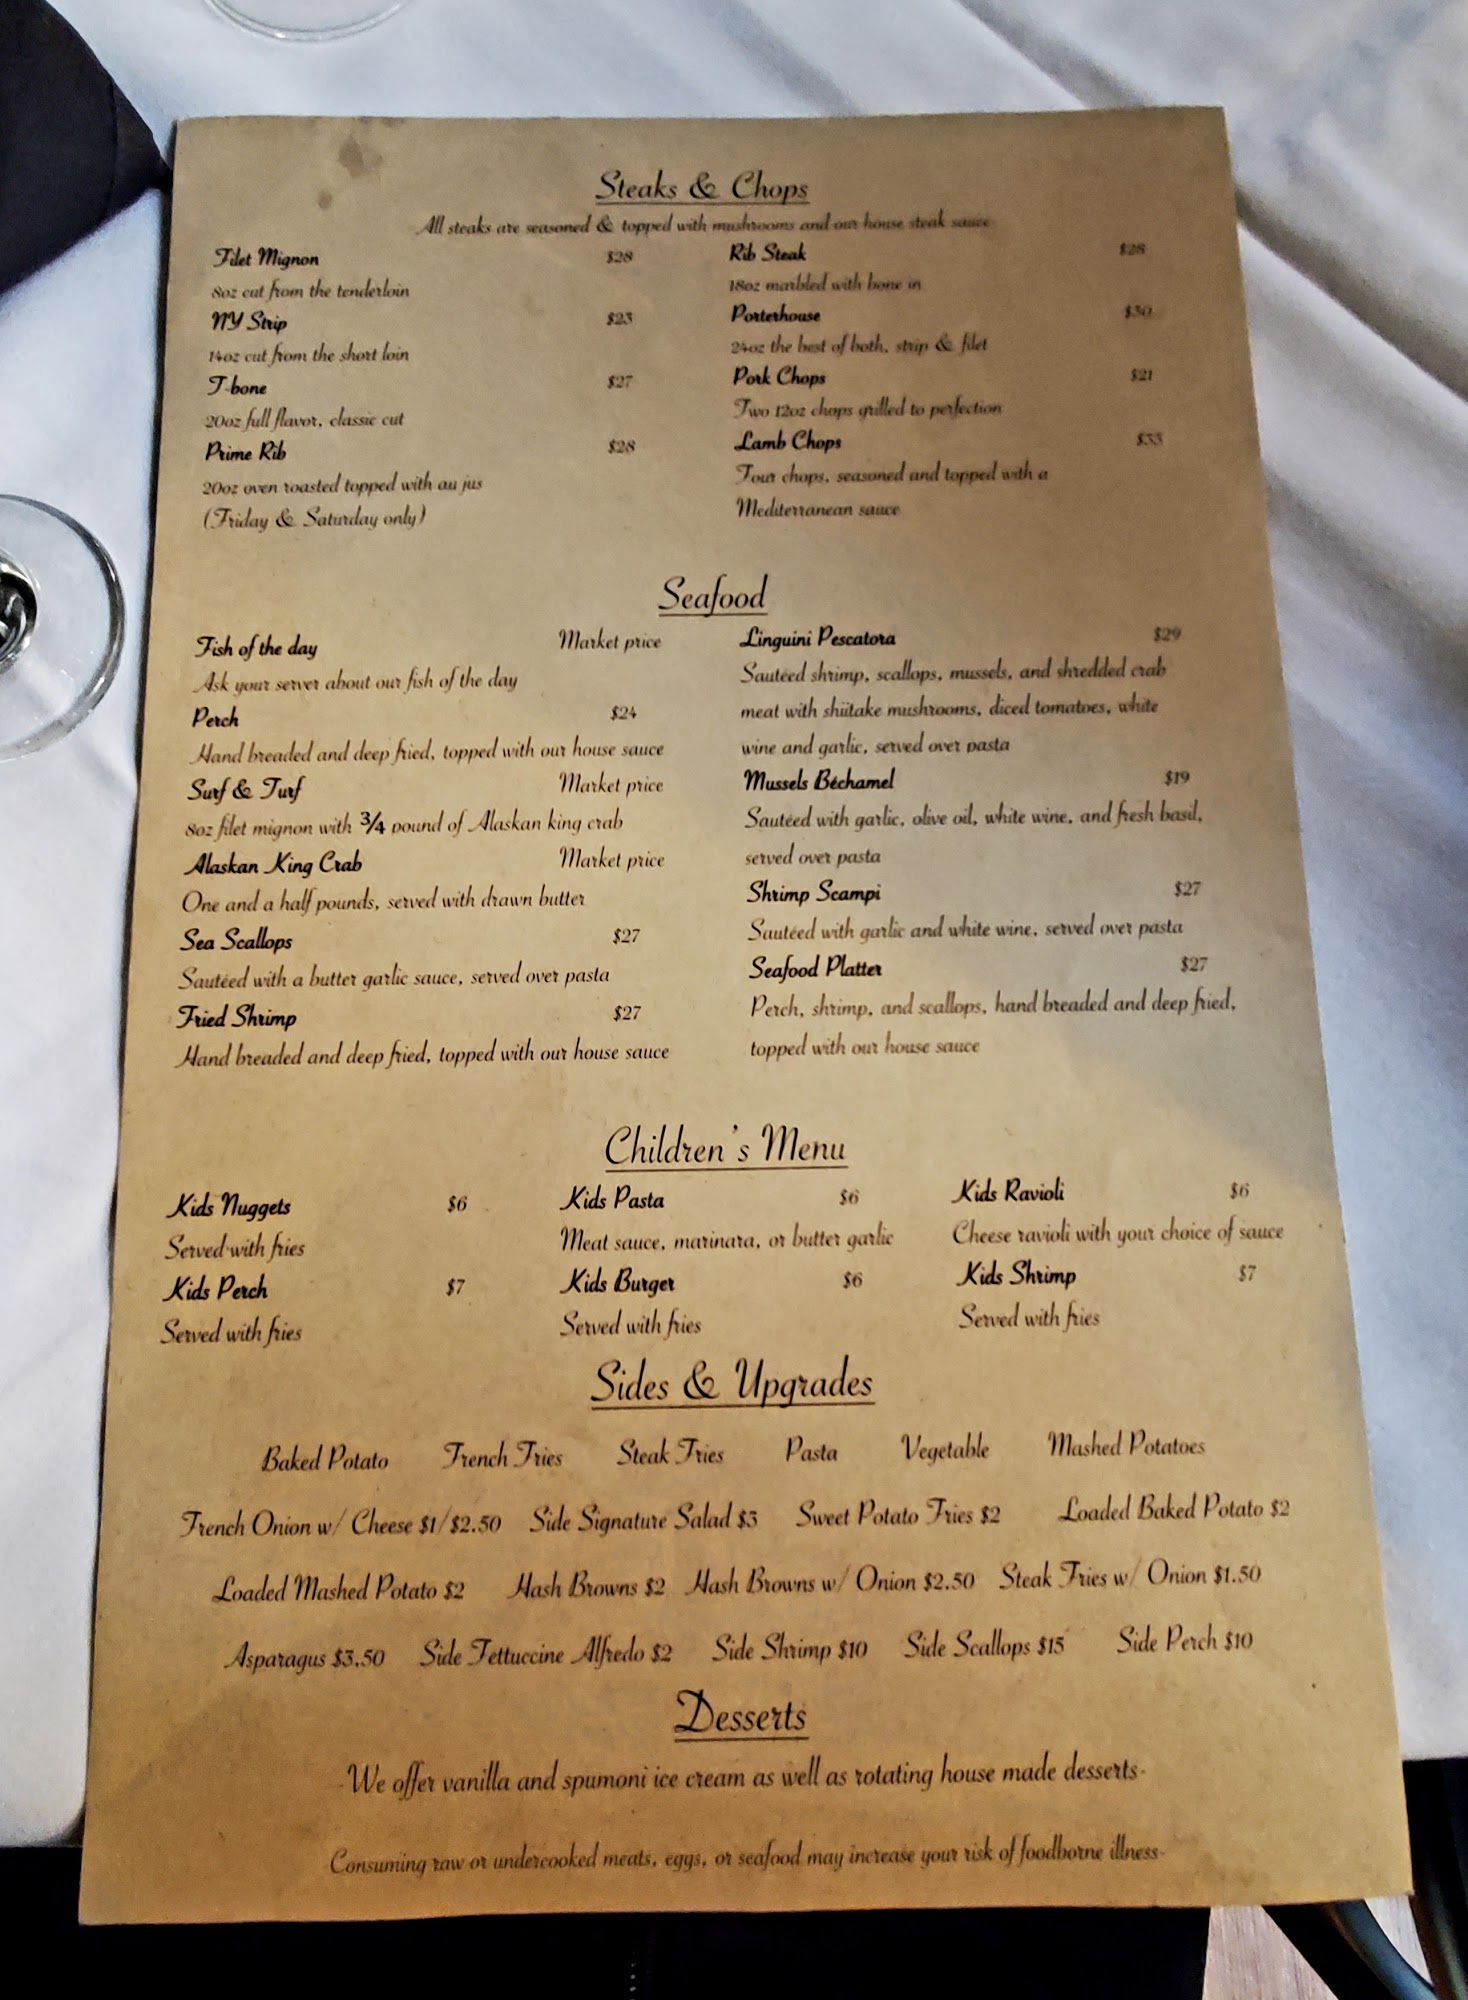 Steaks & Chops
All steaks are seasoned & topped with mushrooms and our house steak sauce
Filet Mignon $28
8oz cut from the tenderloin
NY Strip $23
14oz cut from the short loin
T-bone $27
20oz full flavor, classic cut
Prime Rib $28
20oz oven roasted topped with au jus
(Friday & Saturday only)
Rib Steak $28
18oz marbled with bone in
Porterhouse $30
24oz the best of both, strip & filet
Pork Chops $21
Two 12oz chops grilled to perfection
Lamb Chops $33
Four chops, seasoned and topped with a
Mediterranean sauce
Seafood
Fish of the day Market price
Ask your server about our fish of the day
Perch $24
Hand breaded and deep fried, topped with our house sauce
Surf & Turf Market price
8oz filet mignon with ¾ pound of Alaskan king crab
Alaskan King Crab Market price
One and a half pounds, served with drawn butter
Sea Scallops $27
Sautéed with a butter garlic sauce, served over pasta
Fried Shrimp $27
Hand breaded and deep fried, topped with our house sauce
Linguini Pescatora $29
Sautéed shrimp, scallops, mussels, and shredded crab
meat with shiitake mushrooms, diced tomatoes, white
wine and garlic, served over pasta
Mussels Béchamel $19
Sautéed with garlic, olive oil, white wine, and fresh basil,
served over pasta
Shrimp Scampi $27
Sautéed with garlic and white wine, served over pasta
Seafood Platter $27
Perch, shrimp, and scallops, hand breaded and deep fried,
topped with our house sauce
Children's Menu
Kids Nuggets $6 Kids Pasta $6 Kids Ravioli $6
Served with fries Meat sauce, marinara, or butter garlic Cheese ravioli with your choice of sauce
Kids Perch $7 Kids Burger $6 Kids Shrimp $7
Served with fries Served with fries Served with fries
Sides & Upgrades
Baked Potato French Fries Steak Fries Pasta Vegetable Mashed Potatoes
French Onion w/ Cheese $1/$2.50 Side Signature Salad $3 Sweet Potato Fries $2 Loaded Baked Potato $2
Loaded Mashed Potato $2 Hash Browns $2 Hash Browns w/ Onion $2.50 Steak Fries w/ Onion $1.50
Asparagus $3.50 Side Fettuccine Alfredo $2 Side Shrimp $10 Side Scallops $15 Side Perch $10
Desserts
-We offer vanilla and spumoni ice cream as well as rotating house made desserts-
-Consuming raw or undercooked meats, eggs, or seafood may increase your risk of foodborne illness-